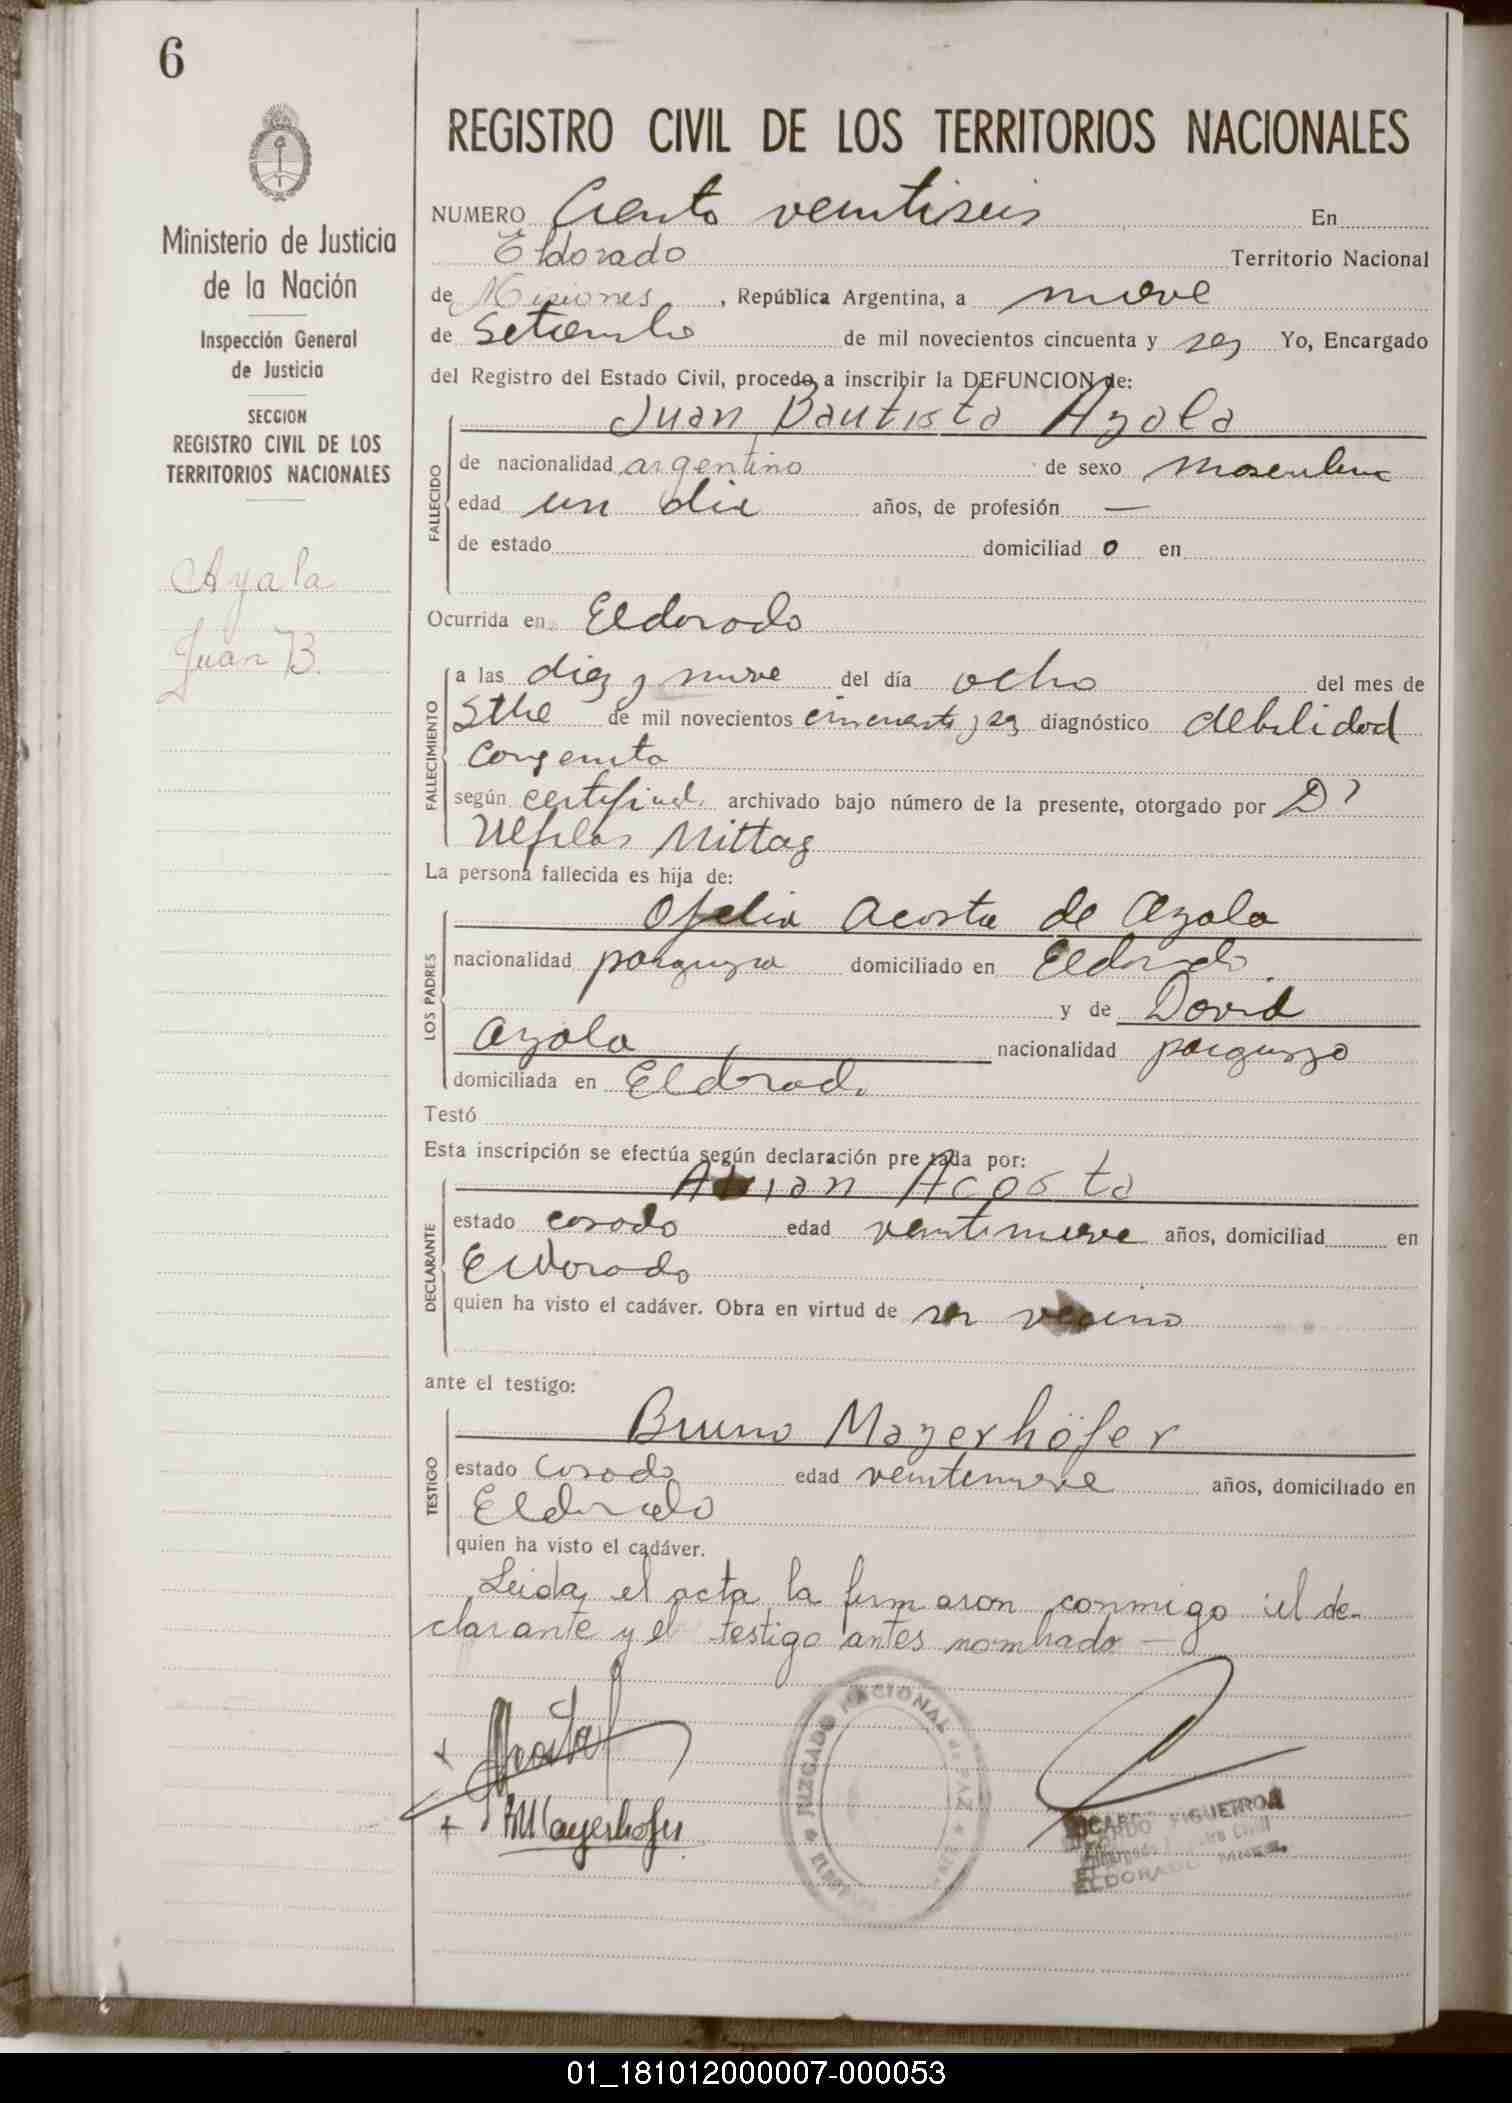 6
Ministerio de Justicia
de la Nación
Inspección General
de Justicia
SECCION
REGISTRO CIVIL DE LOS
TERRITORIOS NACIONALES
Ayala
Juan B.
REGISTRO CIVIL DE LOS TERRITORIOS NACIONALES
NUMERO Ciento veintiseis En
Eldorado Territorio Nacional
de Misiones, República Argentina, a nueve
de Setiembre de mil novecientos cincuenta y seis Yo, Encargado
del Registro del Estado Civil, procedo a inscribir la DEFUNCION de:
Juan Bautista Ayala
FALLECIDO
de nacionalidad argentino de sexo masculino
edad un dia años, de profesión —
de estado domiciliad o en
Ocurrida en Eldorado
FALLECIMIENTO
a las diez y nueve del día ocho del mes de
Stbe de mil novecientos cincuenta y seis diagnóstico debilidad
congenita
según certificado archivado bajo número de la presente, otorgado por Dr
Ulfilas Mittag
La persona fallecida es hija de:
LOS PADRES
Ofelia Acosta de Ayala
nacionalidad paraguaya domiciliado en Eldorado.
y de David
Ayala nacionalidad paraguayo
domiciliada en Eldorado
Testó
Esta inscripción se efectúa según declaración pre tada por:
DECLARANTE
Acosta
estado casado edad veintinueve años, domiciliad en
Eldorado
quien ha visto el cadáver. Obra en virtud de ser vecino
ante el testigo:
TESTIGO
Bruno Mayerhöfer
estado casado edad veintinueve años, domiciliado en
Eldorado
quien ha visto el cadáver.
Leida el acta la firmaron conmigo el de-
clarante y el testigo antes nombrado —
Acosta
BMayerhofer
JUZGADO NACIONAL de PAZ
FIGUEIROA
ELDORADO
01_181012000007-000053